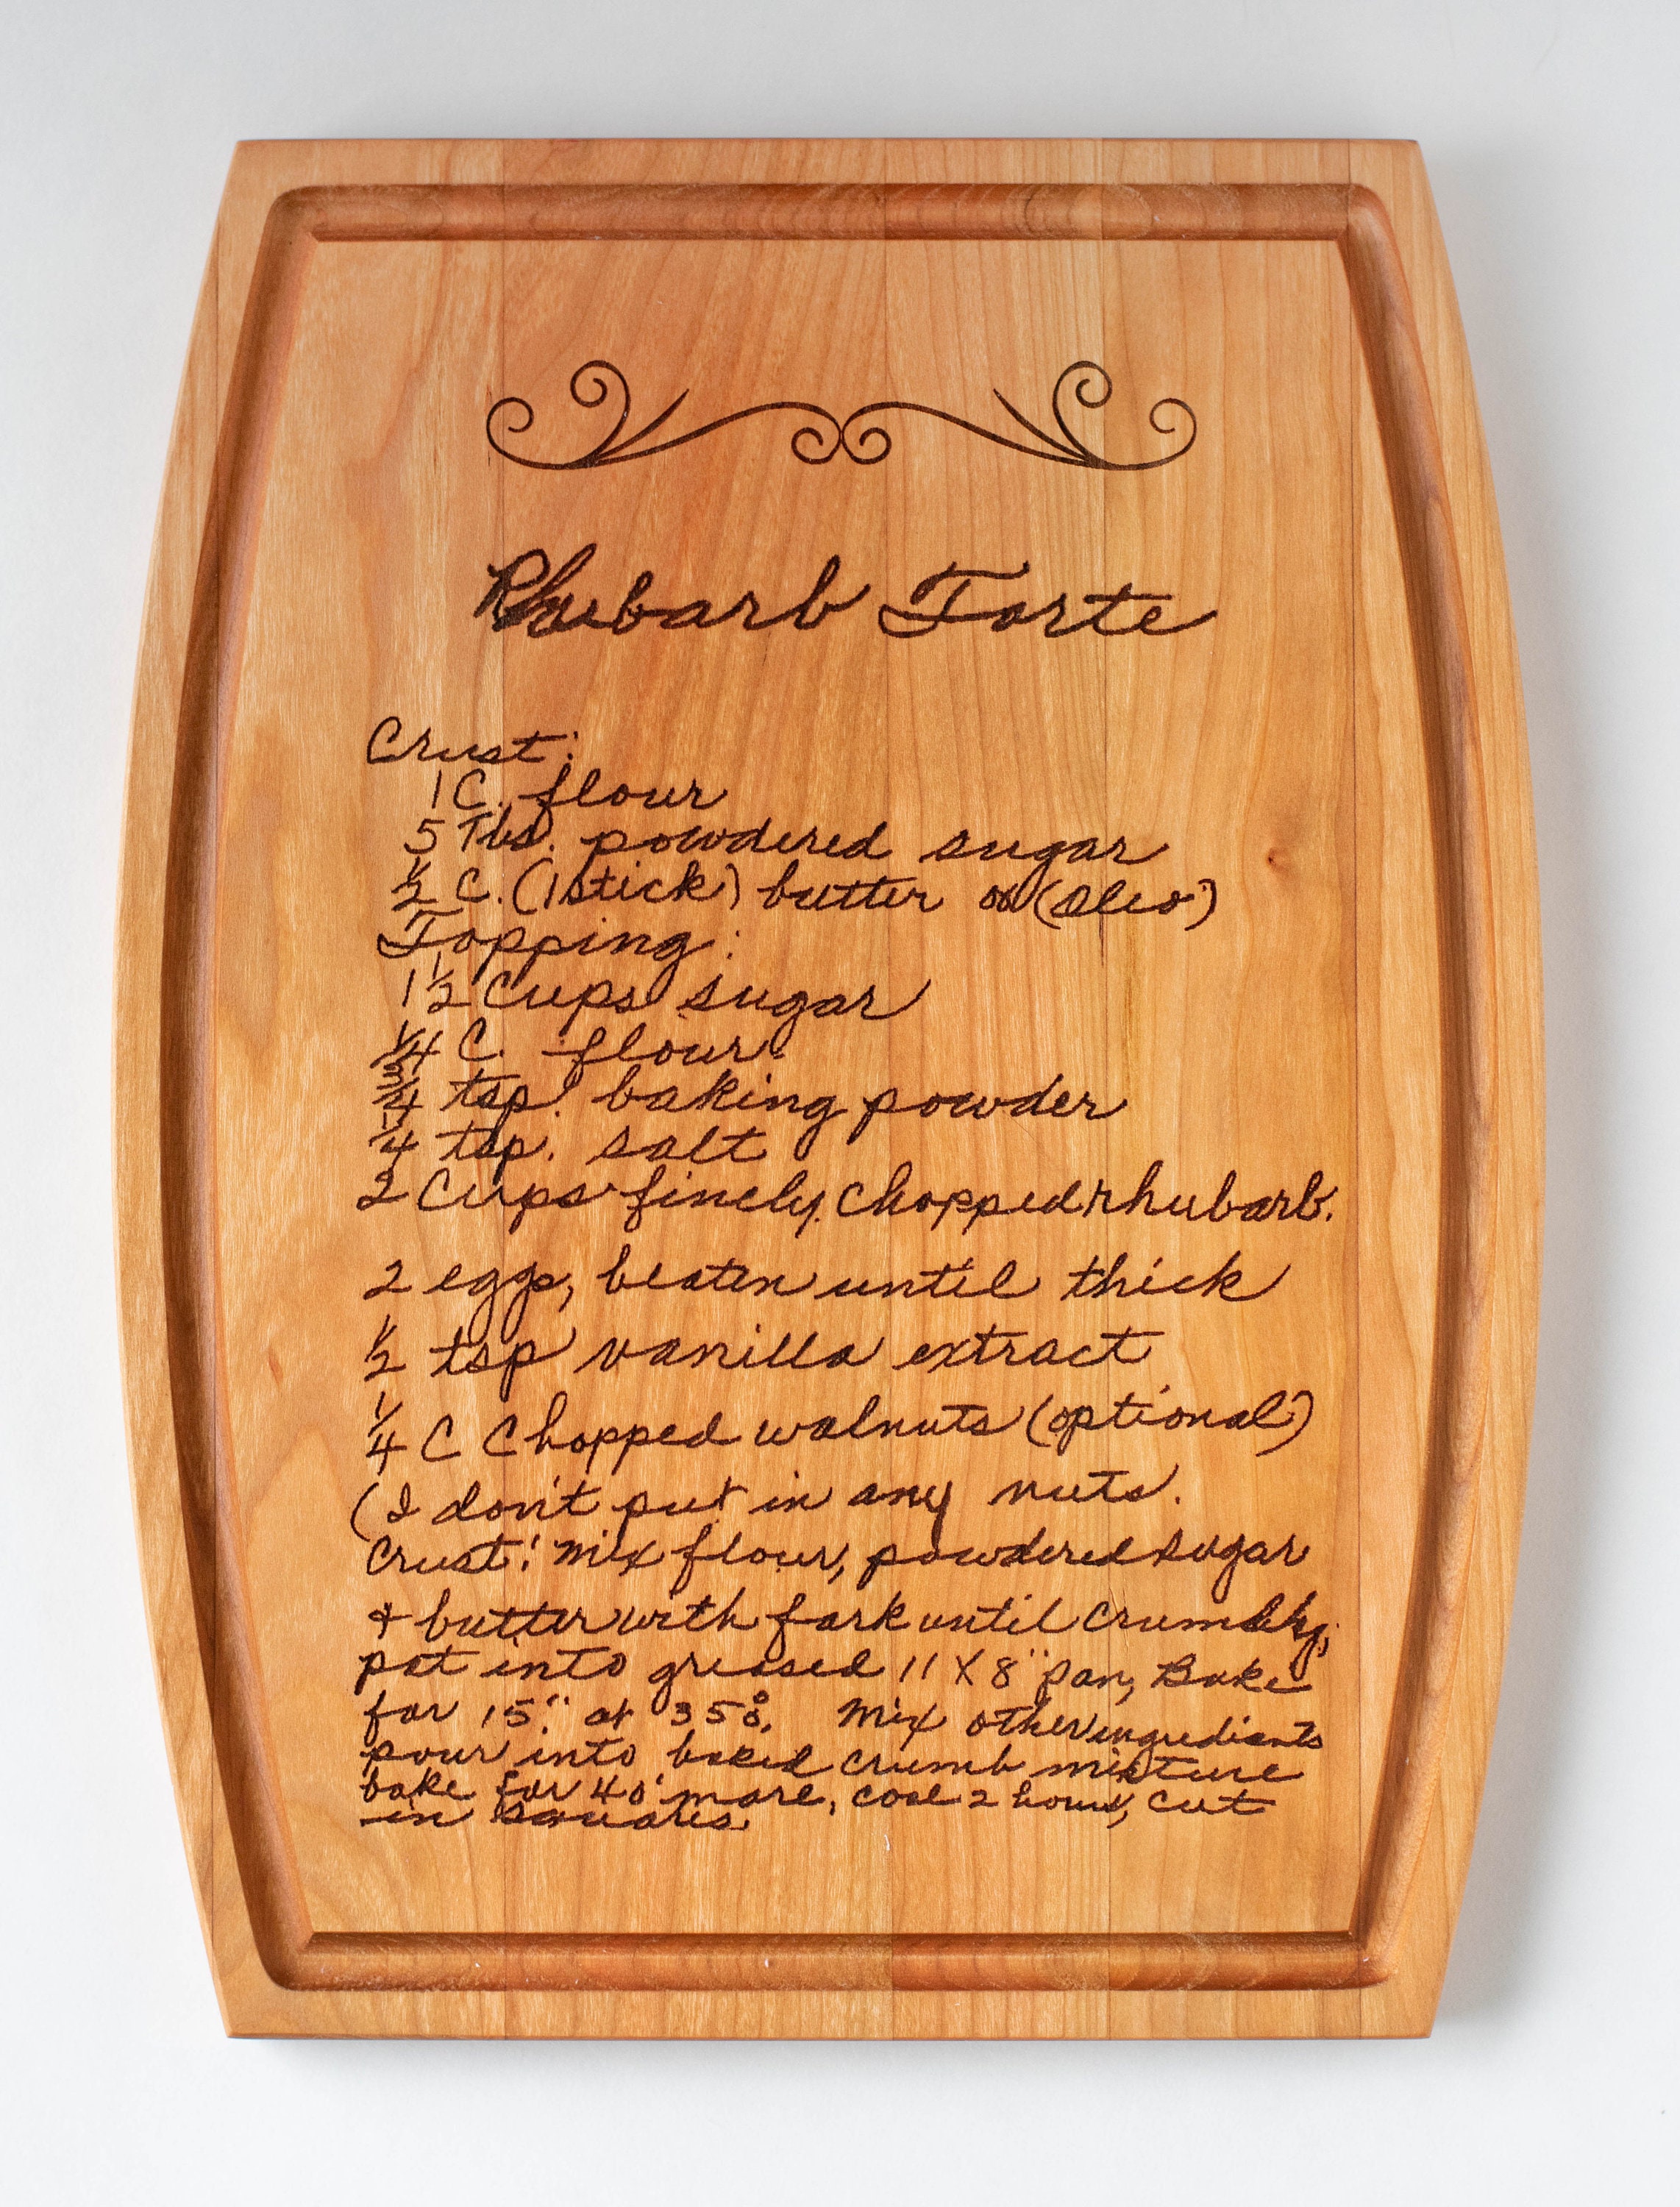 Rhubarb Torte
Crust:
1 C. flour
5 Tbs. powdered sugar
1/2 C. (1 stick) butter or (Oleo)
Topping:
1 1/2 Cups sugar
1/4 C. flour.
3/4 tsp. baking powder
1/4 tsp. salt
2 Cups finely chopped rhubarb.
2 eggs, beaten until thick
1/2 tsp vanilla extract
1/4 C Chopped walnuts (optional)
(I don't put in any nuts.
Crust: Mix flour, powdered sugar
& butter with fork until crumbly;
pat into greased 11 X 8" pan, Bake
for 15" at 350. Mix other ingredients
pour into baked crumb mixture
bake for 40' more, cool 2 hours, cut
in squares.